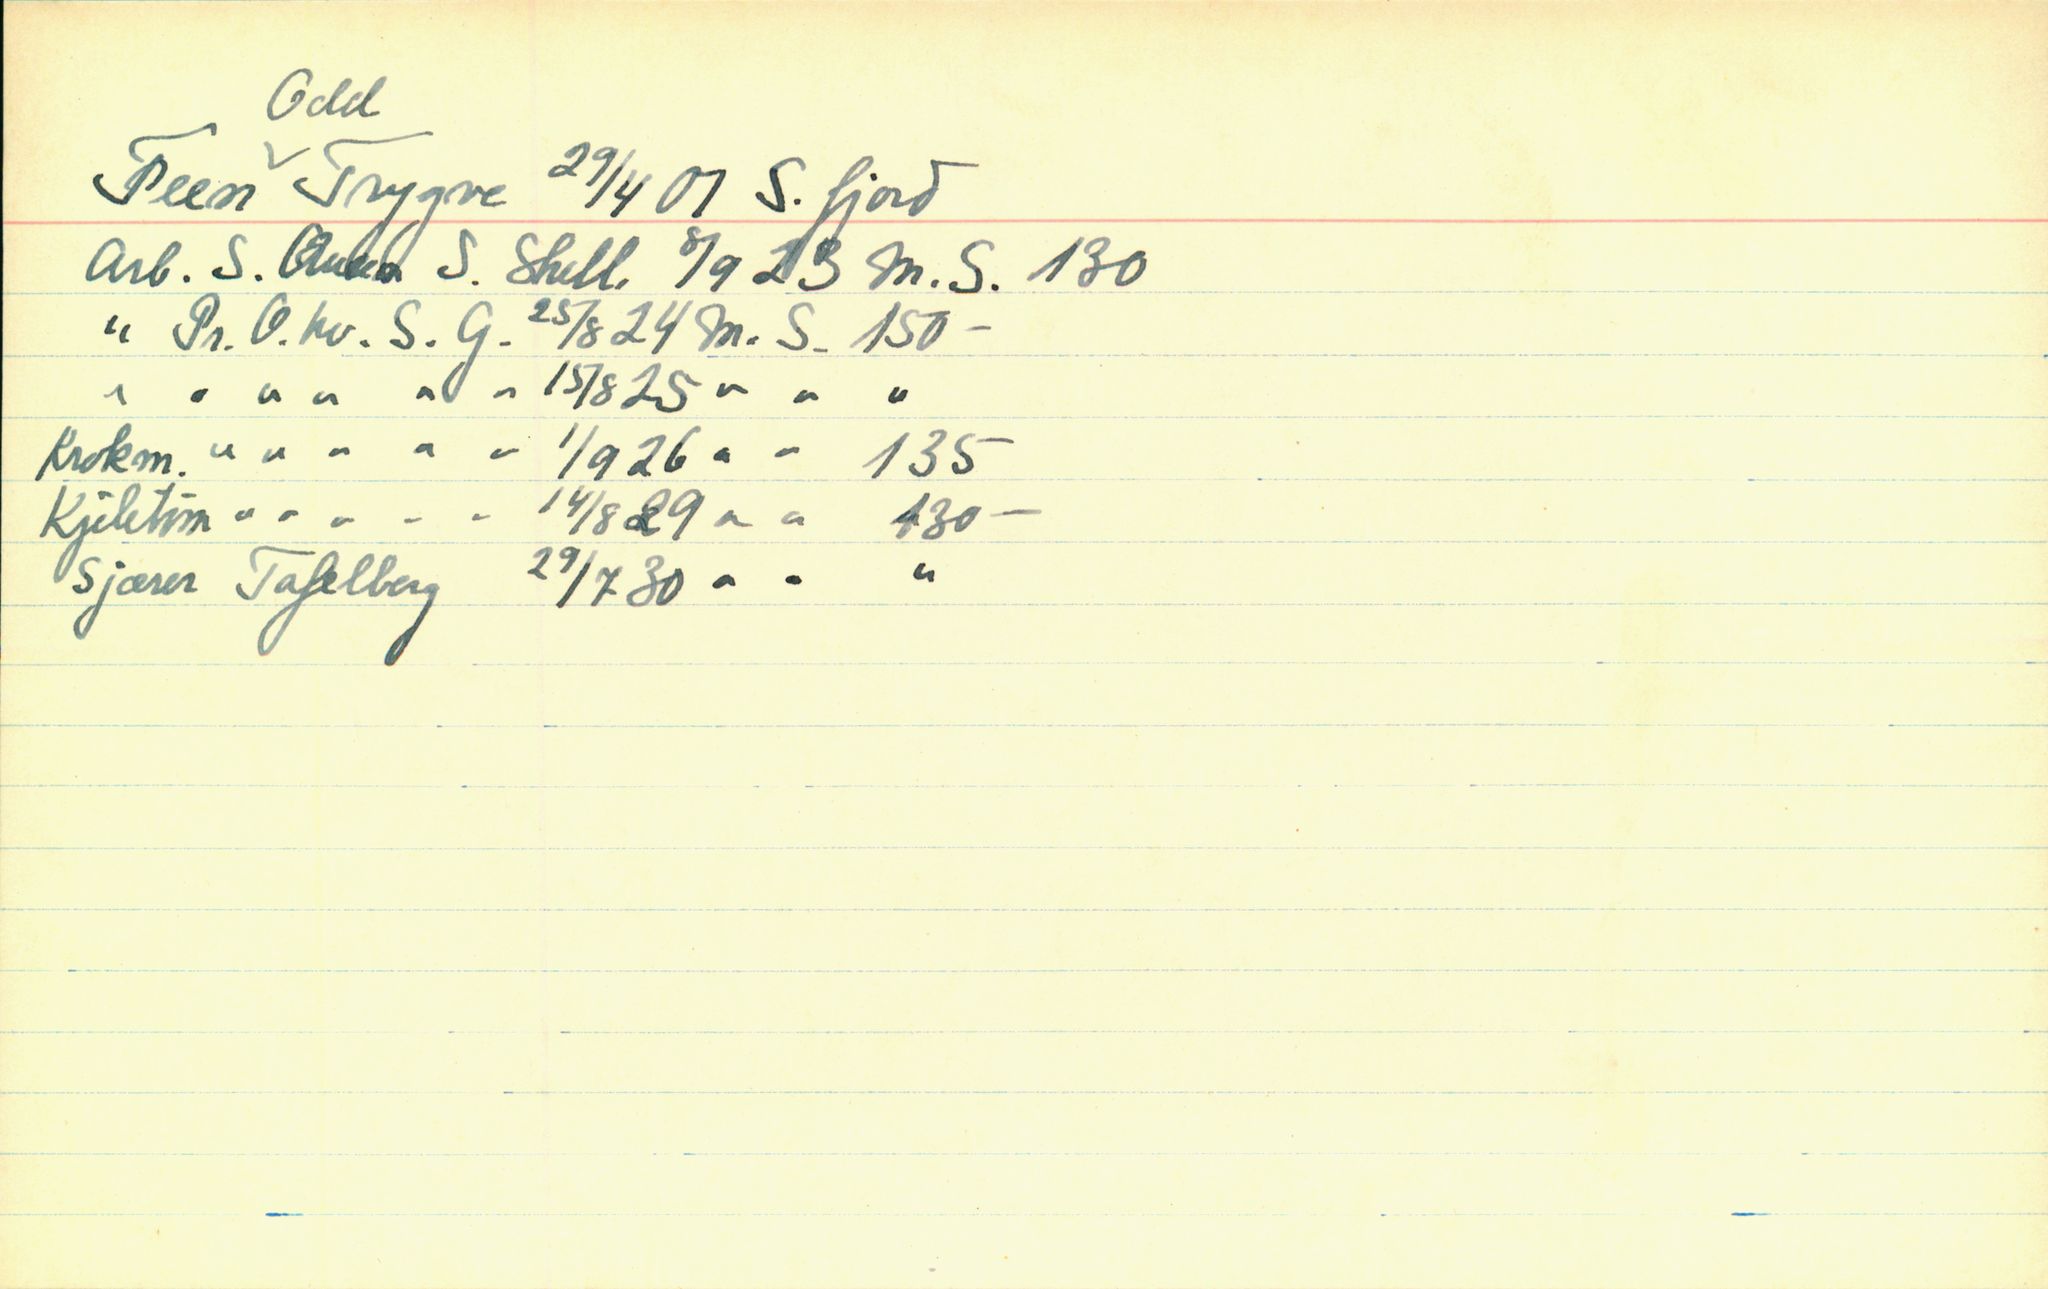 Odd
Feen Trygve 29/4 01 S. fjord
Arb. S. S. Shetl. 8/9 23 M.S. 130
" Pr. O. Kv. S. G. 25/8 24 M. S. 150 -
" " " " " " 15/8 25 " " "
Krokm. " " " " " 1/9 26 " " 135
Kjeletøm " " " " " 14/8 29 " " 130 -
Sjærer Tafelberg 29/7 30 " " "